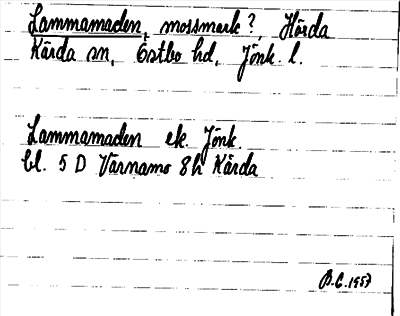 Lammamaden, mossmark?, Hörda
Kärda sn, Östbo hd, Jönk. l.
Lammamaden ek. Jönk.
bl. 5 D Värnamo 8h Kärda
B.E. 1957